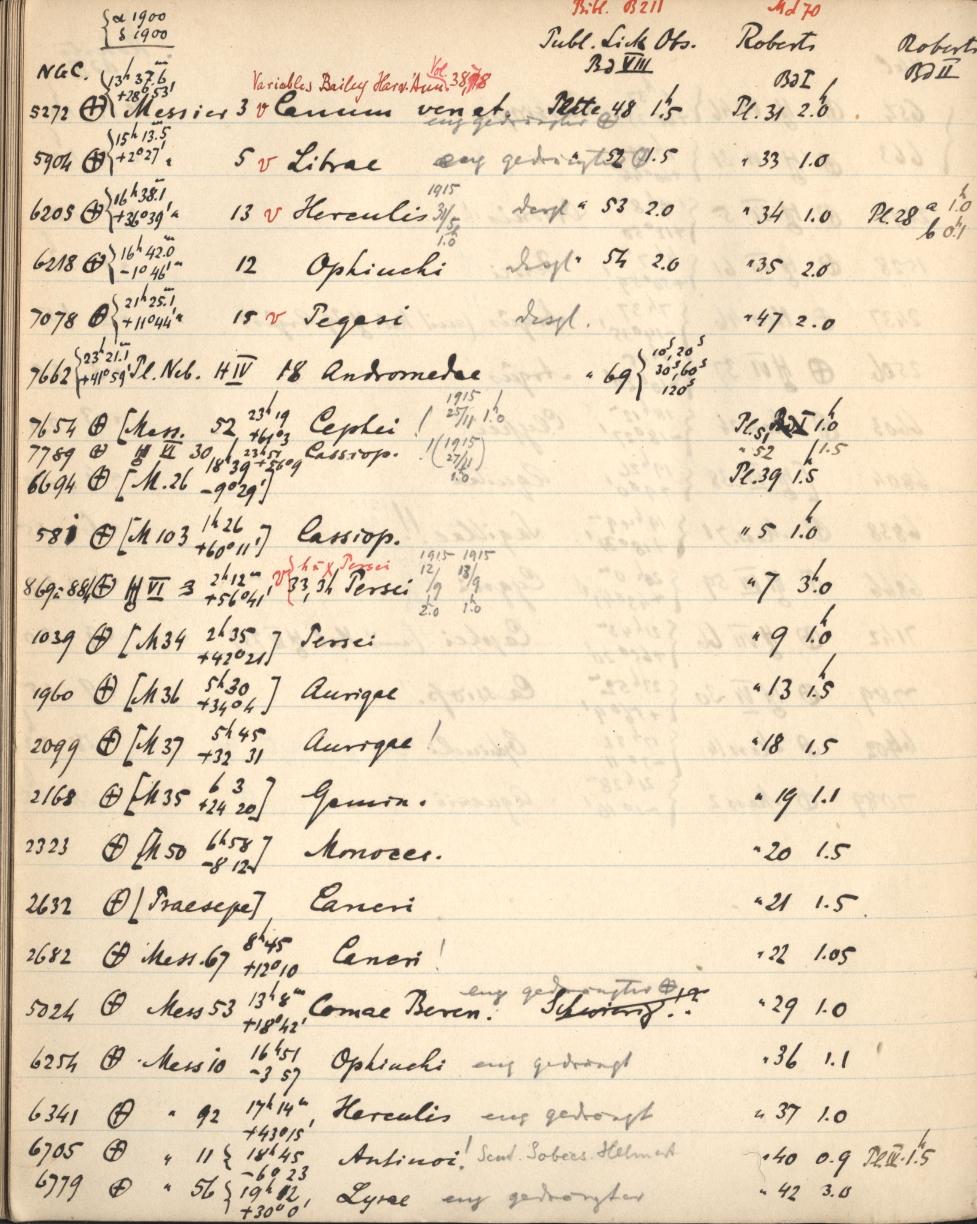 α 1900
δ 1900
Bibl. B211 Md 70
Publ. Lick Obs. Roberts Roberts
Bd VIII Bd I Bd II
NGC. 13h 37.6m +28° 53' Variables Bailey Harv. Ann. Vol. 38, 78
5272 ⊕ Messier 3 v Canum venat. Platte 48 1.5h Pl. 31 2.0h
eng gedrängter ⊕
5904 ⊕ 15h 13.5m +2° 27' " 5 v Librae eng gedrängter ⊕ " 52 1.5 " 33 1.0
6205 ⊕ 16h 38.1m +36° 39' " 13 v Herculis 1915 31/5 1.0h desgl " 53 2.0 " 34 1.0 Pl. 28 a 1.0h b 0.1h
6218 ⊕ 16h 42.0m -1° 46' " 12 Ophiuchi desgl " 54 2.0 " 35 2.0
7078 ⊕ 21h 25.1m +11° 44' " 15 v Pegasi desgl. " 47 2.0
7662 23h 21.1m +41° 59' Pl. Neb. H IV 18 Andromedae " 69 10s, 20s 30s, 60s 120s
7654 ⊕ [Mess. 52 23h 19 +61° 3 Cephei ! 1915 25/11 1.0h Pl. 51 1.0h
7789 ⊕ H VI 30 23h 51 +56° 9 Cassiop. ! (1915 27/11 1.0) " 52 1.5
6694 ⊕ [M. 26 18h 39 -9° 29'] Pl. 39 1.5h
581 ⊕ [M 103 1h 26 +60° 11'] Cassiop. " 5 1.0h
869=884 ⊕ H VI 33, 34 2h 12m +56° 41' v h = χ Persei Persei 1915 12/9 2.0 1915 13/9 1.0 " 7 3.0h
1039 ⊕ [M 34 2h 35 +42° 21] Persei " 9 1.0h
1960 ⊕ [M 36 5h 30 +34° 4] Aurigae " 13 1.5h
2099 ⊕ [M 37 5h 45 +32 31] Aurigae ! " 18 1.5
2168 ⊕ [M 35 6 3 +24 20] Gemin. " 19 1.1
2323 ⊕ [M 50 6h 58 -8 12] Monocer. " 20 1.5
2632 ⊕ [Praesepe] Cancri " 21 1.5
2682 ⊕ Mess. 67 8h 45 +12° 10 Cancri ! " 22 1.05
5024 ⊕ Mess 53 13h 8m +18° 42' Comae Beren. eng gedrängter ⊕ Schwierig !? " 29 1.0
6254 ⊕ Mess 10 16h 51 -3 57 Ophiuchi eng gedrängt " 36 1.1
6341 ⊕ " 92 17h 14m +43° 15' Herculis eng gedrängt " 37 1.0
6705 ⊕ " 11 18h 45 -6° 23 Antinoi ! " 40 0.9 Pl IV 1.5h
6779 ⊕ " 56 19h 12 +30° 0' Lyrae eng gedrängter " 42 3.0